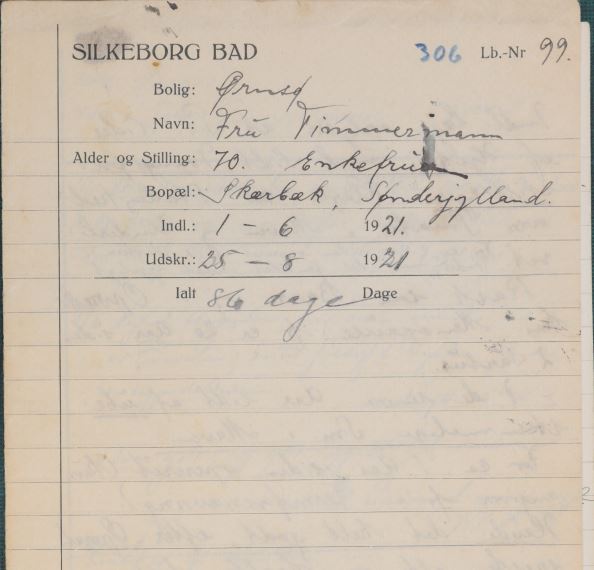 SILKEBORG BAD 306 Lb.-Nr 99.
Bolig: Ørnsø
Navn: Fru Timmermann
Alder og Stilling: 70. Enkefrue
Bopæl: Skærbæk, Sønderjylland.
Indl.: 1 - 6 1921.
Udskr.: 25 - 8 1921
Ialt 86 dage Dage